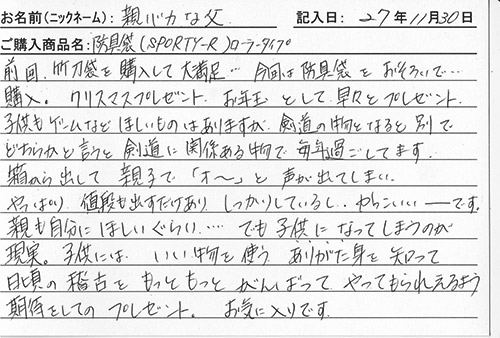 お名前(ニックネーム): 親バカな父 記入日: 27年11月30日
ご購入商品名: 防具袋(SPORTY-R)ローラータイプ
前回、竹刀袋を購入して大満足… 今回は防具袋をおそろいで…
購入。クリスマスプレゼント、お年玉として、早々とプレゼント。
子供もゲームなどほしいものはありますが、剣道の物となると別で
どちらかと言うと剣道に関係ある物で毎年過ごしてます。
箱から出して親子で「オ〜」と声が出てしまい、
やっぱり、値段も出すだけあり、しっかりしているし、かっこいいーです。
親も自分にほしいぐらい…。でも子供になってしまうのが
現実。子供には、いい物を使う、ありがた身を知って
日頃の稽古をもっともっとがんばってやってもられえるよう
期待をしてのプレゼント。お気に入りです。